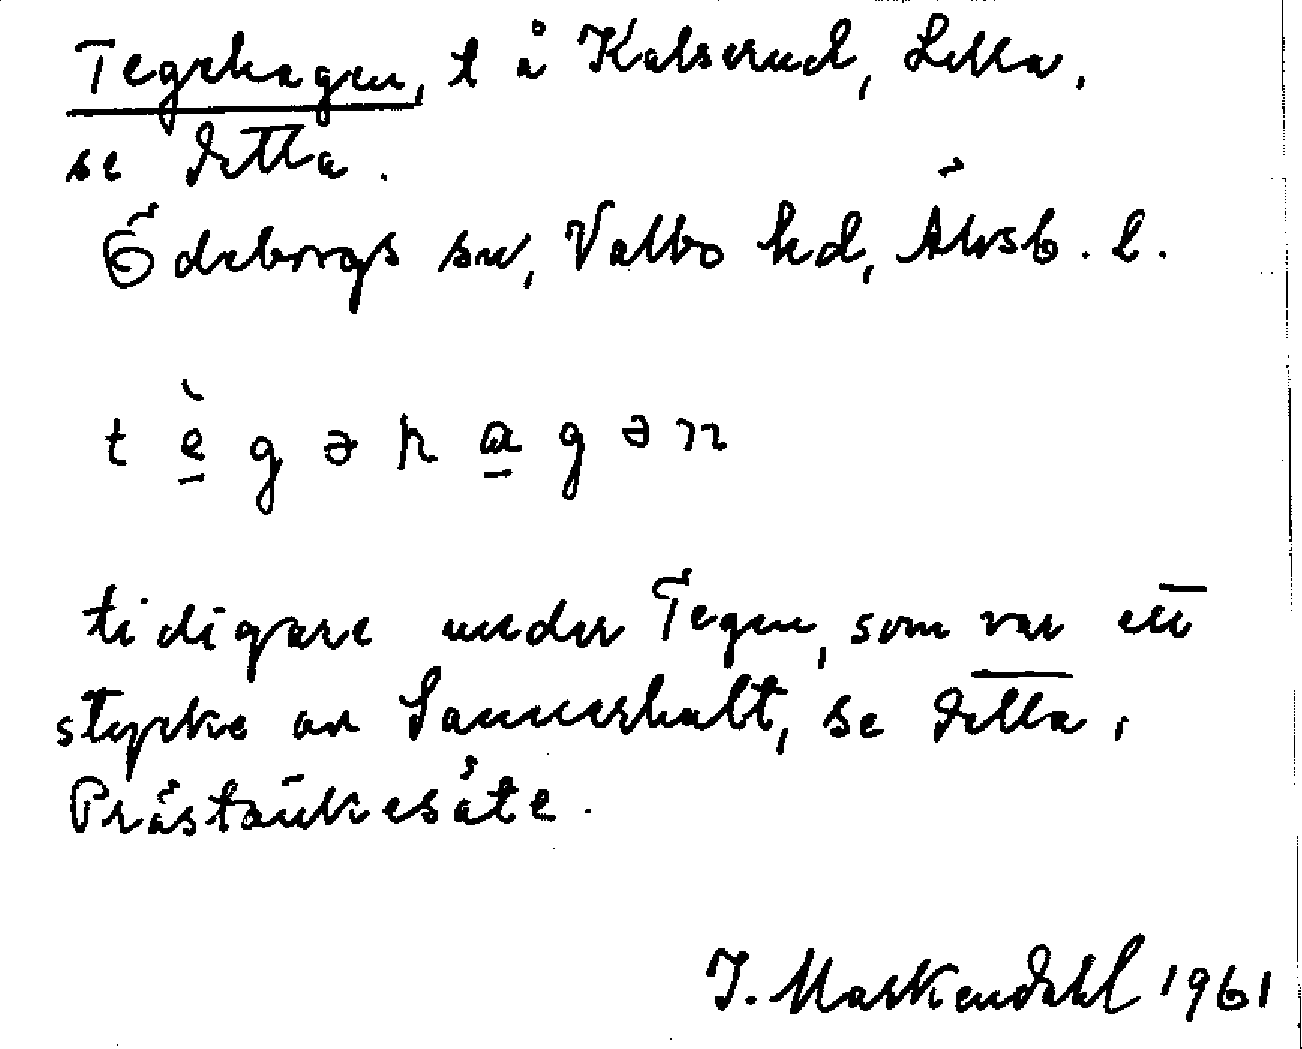 Tegehagen, t å Kalserud, Lilla,
se detta.
Ödeborgs sn, Valbo hd, Älvsb. l.
t è g ə h a g ə n
tidigare under Tegen, som var ett
stycke av Sannerhalt, se detta,
Prästänkesäte.
J. Markendahl 1961